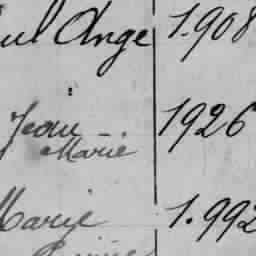 Ange 1.908
Jean 1926
Marie
Marie 1.992